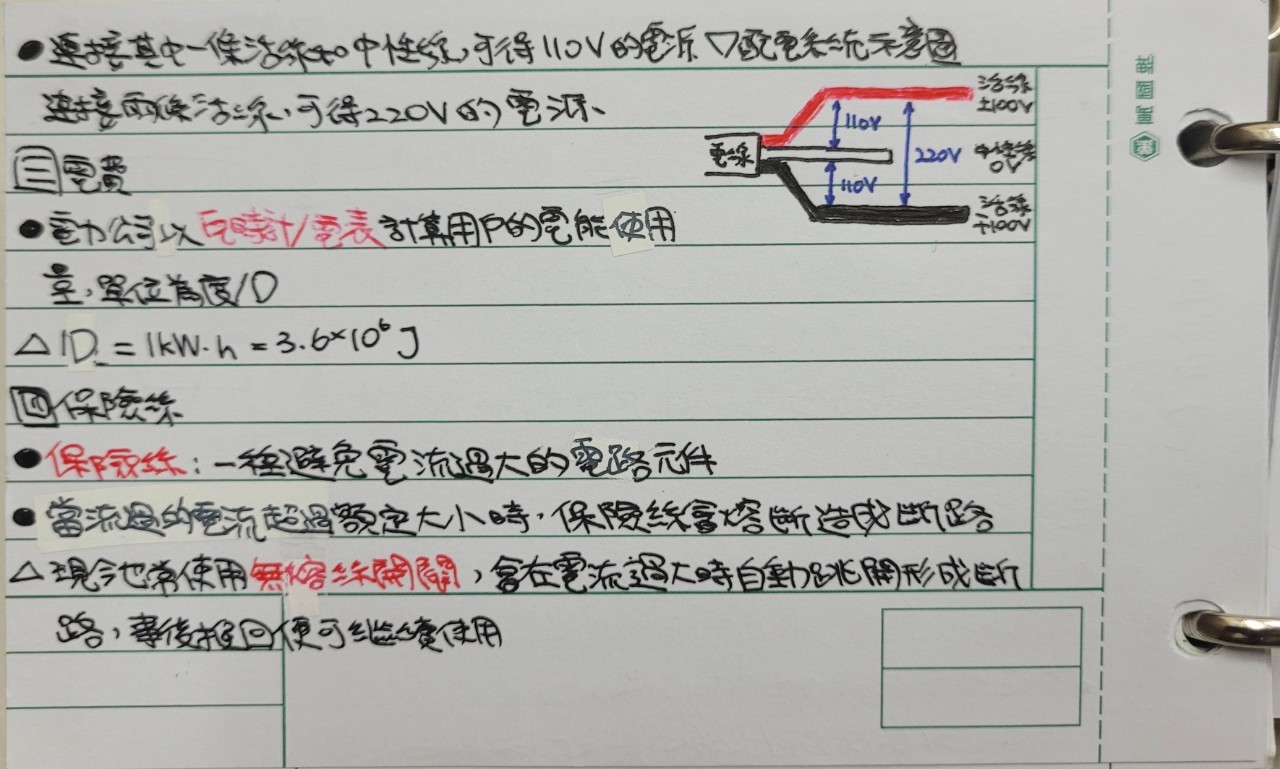 ●連接其中一條活線和中性線,可得110V的電源 ▽配電系統示意圖
連接兩條活線,可得220V的電源.
活線
±100V
110V
電線
220V
中性線
0V
110V
活線
∓100V
三電費
●電力公司以瓦時計/電表計算用戶的電能使用
量,單位為度/D
△1D = 1kW·h = 3.6×10⁶ J
四保險絲
●保險絲:一種避免電流過大的電路元件
●當流過的電流超過額定大小時,保險絲會熔斷造成斷路
△現今也常使用無熔絲開關,會在電流過大時自動跳開形成斷
路,事後扳回便可繼續使用